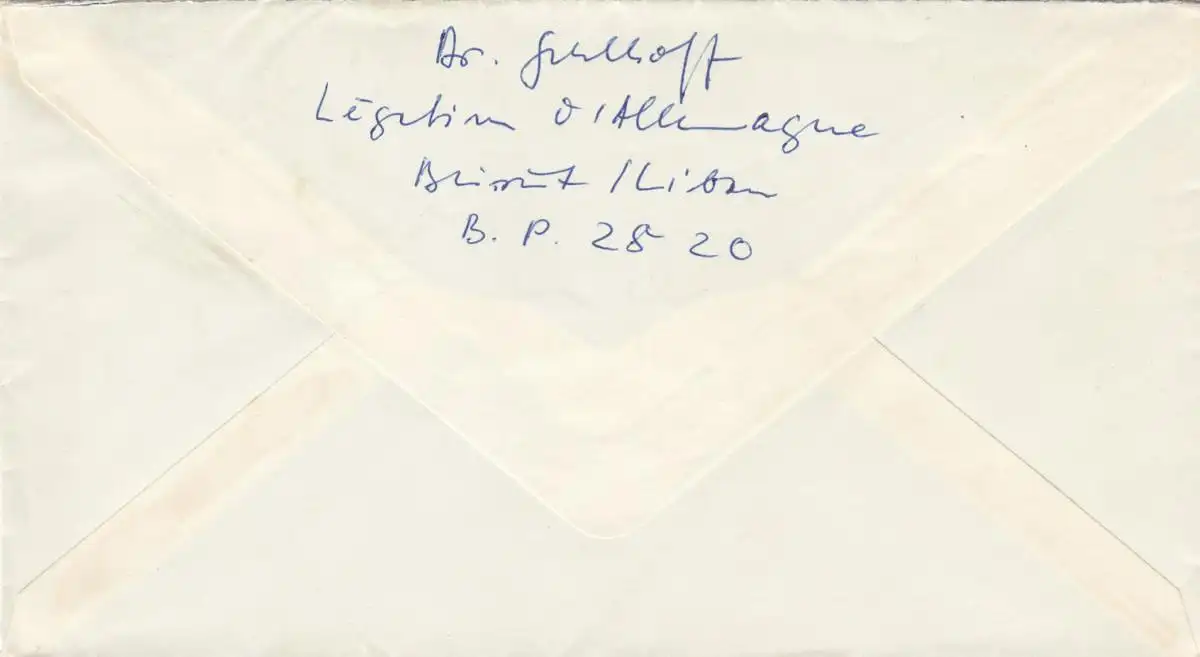 Dr.
Légation d'Allemagne
Beirut / Liban
B. P. 28 20